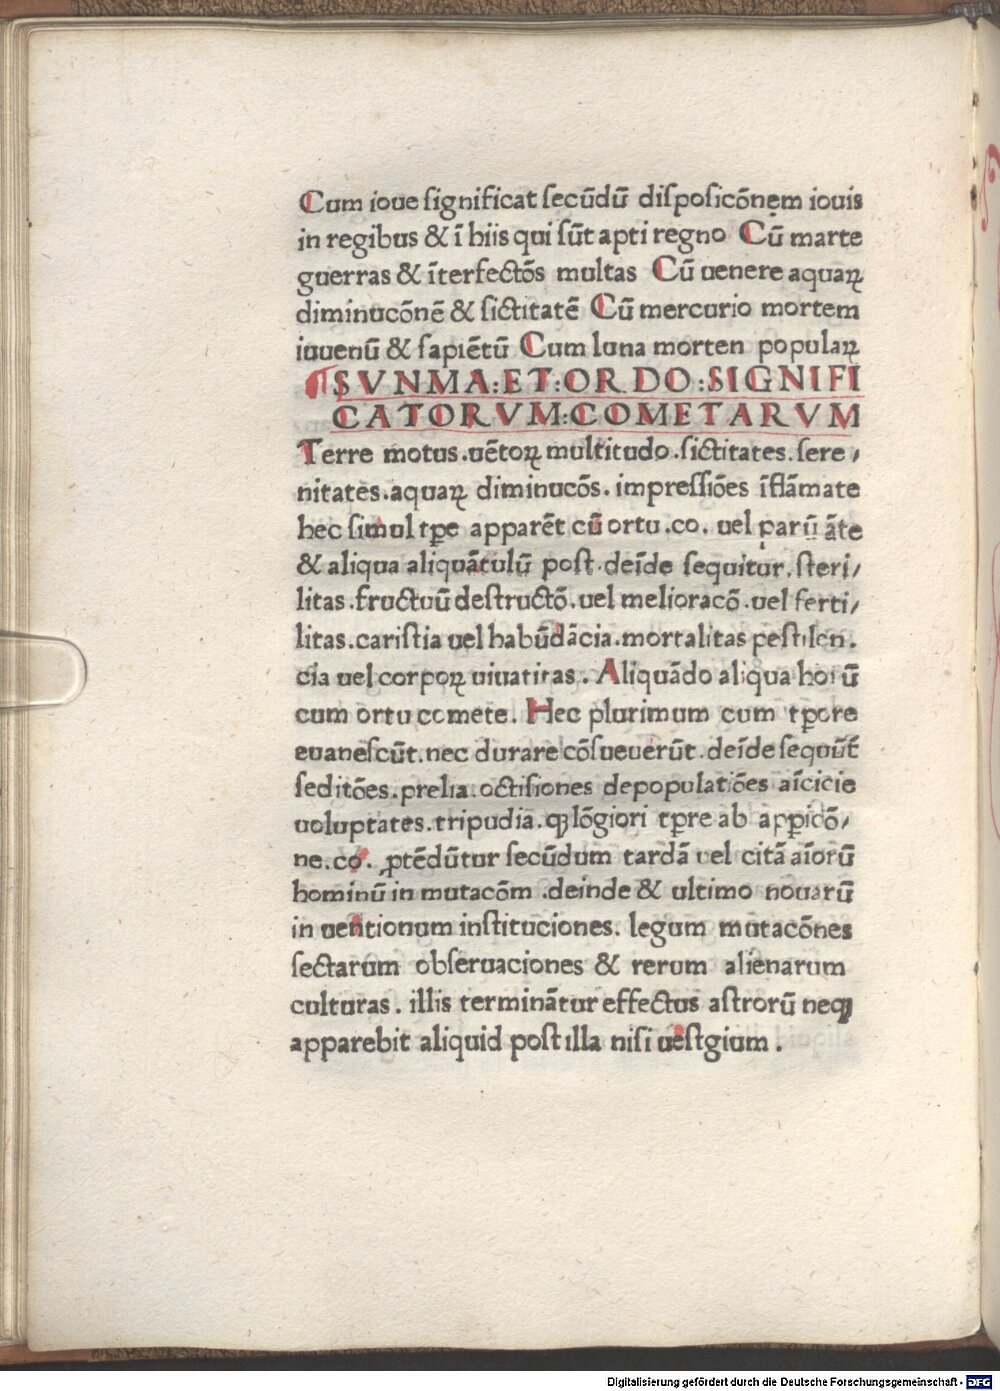 Cum ioue ſignificat ſecūdū diſpoſicōnem iouis
in regibus & ī hiis qui ſūt apti regno Cū marte
guerras & īterfectōs multas Cū uenere aquaꝝ
diminucōnē & ſictitatē Cū mercurio mortem
iuuenū & ſapiētū Cum luna morten populaꝝ
¶SVNMA:ET:ORDO:SIGNIFI
CATORVM:COMETARVM
Terre motus.uētoꝝ multitudo.ſictitates.ſere,
nitates.aquaꝝ diminucōs.impreſſiōes īflāmate
hec ſimul tꝑe apparēt cū ortu.co. uel parū āte
& aliqua aliquātulū poſt.deīde ſequitur.ſteri,
litas.fructuū deſtructō.uel melioracō.uel ferti,
litas.cariſtia uel habūdācia.mortalitas peſtilen.
cia uel corpoꝝ uiuatitas. Aliquādo aliqua horū
cum ortu comete. Hec plurimum cum tꝑore
euaneſcūt.nec durare cōſueuerūt.deīde ſequūt̄
ſeditōes.prelia.octiſiones depopulatiōes aīcicie
uoluptates.tripudia.qꝫ lōgiori tꝑre ab aꝑpicō,
ne.co. ꝓtēdūtur ſecūdum tardā uel citā aīorū
hominū in mutacōm .deinde & ultimo nouarū
in uentionum inſtituciones. legum mutacōnes
ſectarum obſeruaciones & rerum alienarum
culturas. illis terminātur effectus aſtrorū neqꝫ
apparebit aliquid poſt illa niſi ueſtgium.
Digitalisierung gefördert durch die Deutsche Forschungsgemeinschaft - DFG